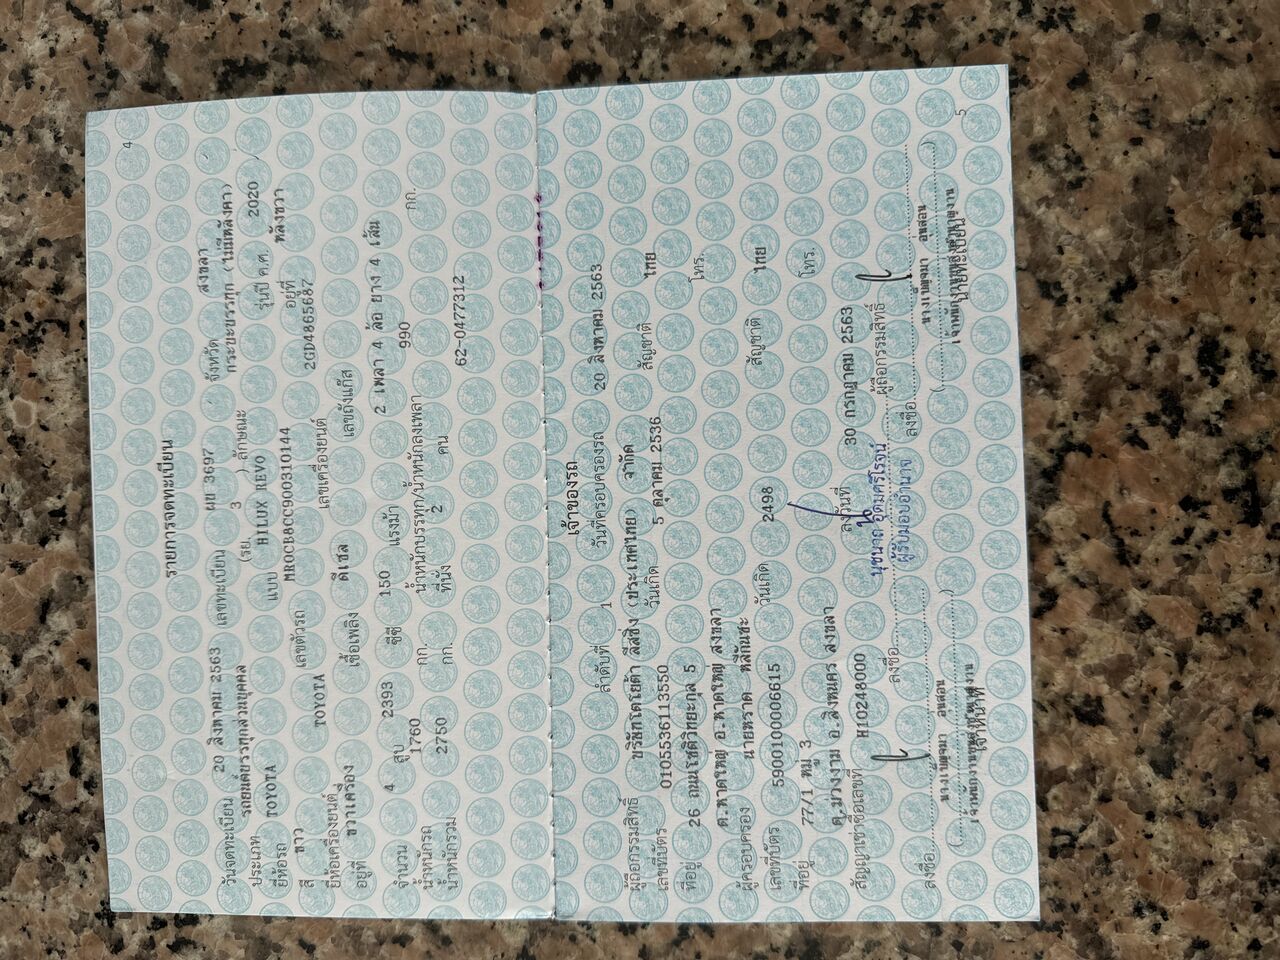 4
รายการจดทะเบียน
วันจดทะเบียน 20 สิงหาคม 2563 เลขทะเบียน ผย 3697 จังหวัด สงขลา
ประเภท รถยนต์บรรทุกส่วนบุคคล (รย. 3 ) ลักษณะ กระบะบรรทุก (ไม่มีหลังคา)
ยี่ห้อรถ TOYOTA แบบ HILUX REVO รุ่นปี ค.ศ. 2020
สี ขาว เลขตัวรถ MR0CB8CC900310144 อยู่ที่ หลังขวา
ยี่ห้อเครื่องยนต์ TOYOTA เลขเครื่องยนต์ 2GD4865687
อยู่ที่ ขวาเครื่อง เชื้อเพลิง ดีเซล เลขถังแก๊ส
จำนวน 4 สูบ 2393 ซีซี 150 แรงม้า 2 เพลา 4 ล้อ ยาง 4 เส้น
น้ำหนักรถ 1760 กก. น้ำหนักบรรทุก/น้ำหนักลงเพลา 990 กก.
น้ำหนักรวม 2750 กก. ที่นั่ง 2 คน
62-0477312
เจ้าของรถ
ลำดับที่ 1 วันที่ครอบครองรถ 20 สิงหาคม 2563
ผู้ถือกรรมสิทธิ์ บริษัทโตโยต้า ลีสซิ่ง (ประเทศไทย) จำกัด
เลขที่บัตร 0105536113550 วันเกิด 5 ตุลาคม 2536 สัญชาติ ไทย
ที่อยู่ 26 ถนนโชติวิทยะกุล 5
ต.หาดใหญ่ อ.หาดใหญ่ สงขลา โทร.
ผู้ครอบครอง นายหราด หลีกันชะ
เลขที่บัตร 5900100006615 วันเกิด 2498 สัญชาติ ไทย
ที่อยู่ 77/1 หมู่ 3
ต.ม่วงงาม อ.สิงหนคร สงขลา โทร.
สัญญาเช่าซื้อเลขที่ H10248000 ลงวันที่ 30 กรกฎาคม 2563
นุชนาถ อุดมศรีโรจน์
ลงชื่อ ผู้ถือกรรมสิทธิ์
ผู้รับมอบอำนาจ
ลงชื่อ ลงชื่อ
(นางเบญจมา อ่อนล่อน) (นางเบญจมา อ่อนล่อน)
เจ้าหน้าที่ นายทะเบียน
5